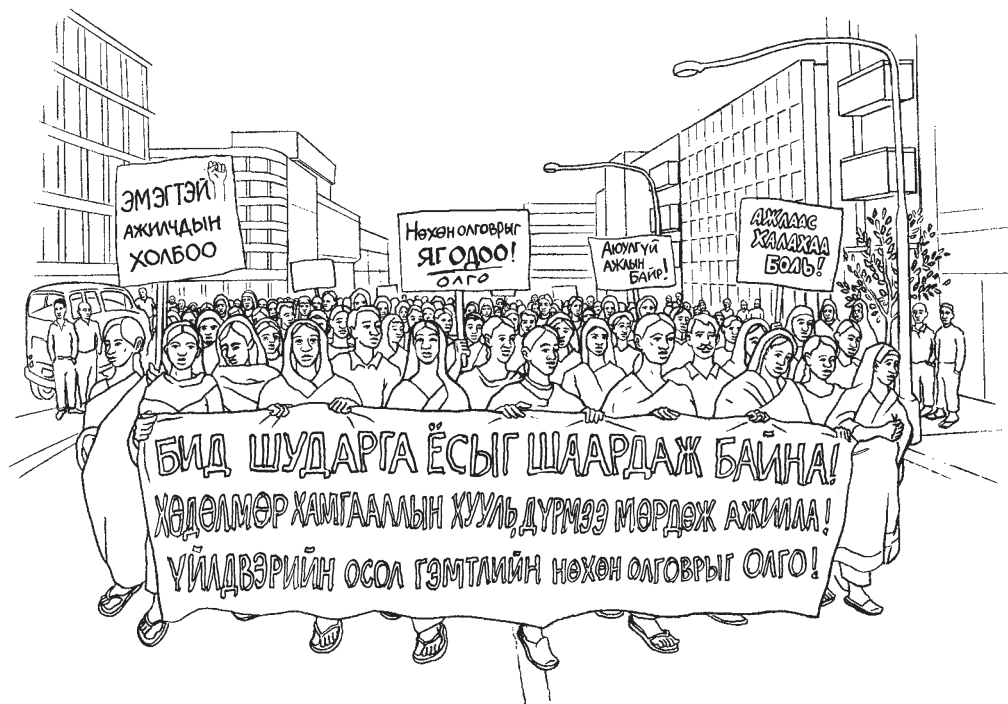 ЭМЭГТЭЙ
АЖИЛЧДЫН
ХОЛБОО
Нөхөн олговрыг
ЯГ ОДОО!
ОЛГО
АЮУЛГҮЙ
АЖЛЫН
БАЙР!
АЖЛААС
ХАЛАХАА
БОЛЬ!
БИД ШУДАРГА ЁСЫГ ШААРДАЖ БАЙНА!
ХӨДӨЛМӨР ХАМГААЛЛЫН ХУУЛЬ, ДҮРМЭЭ МӨРДӨЖ АЖИЛЛА!
ҮЙЛДВЭРИЙН ОСОЛ ГЭМТЛИЙН НӨХӨН ОЛГОВРЫГ ОЛГО!